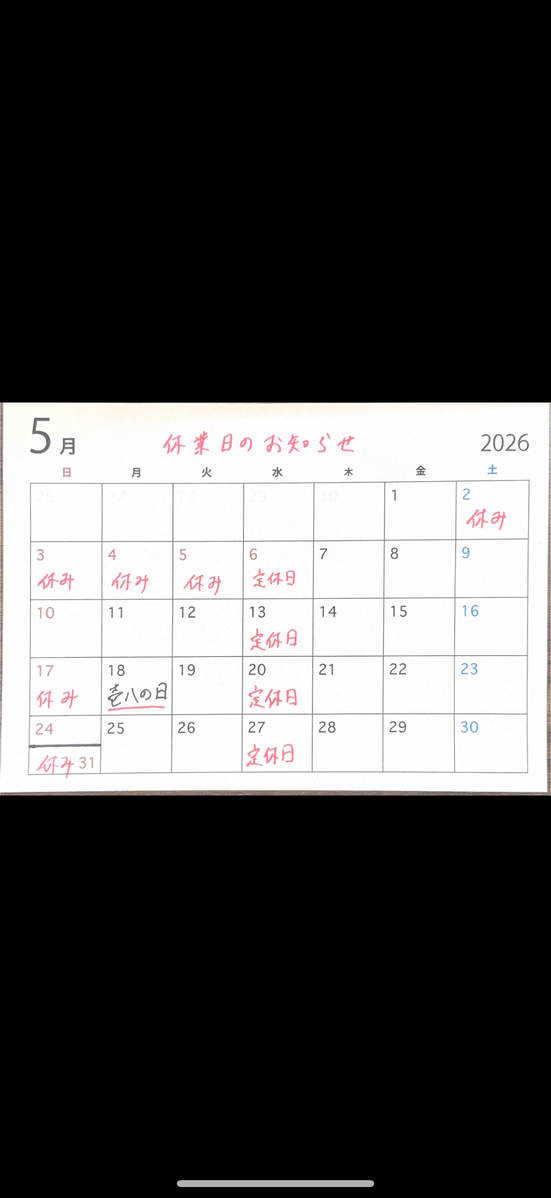 5月 休業日のお知らせ 2026
日 月 火 水 木 金 土
26 27 28 29 30 1 2
休み
3 4 5 6 7 8 9
休み 休み 休み 定休日
10 11 12 13 14 15 16
定休日
17 18 19 20 21 22 23
休み 壱八の日 定休日
24 25 26 27 28 29 30
休み 31 定休日